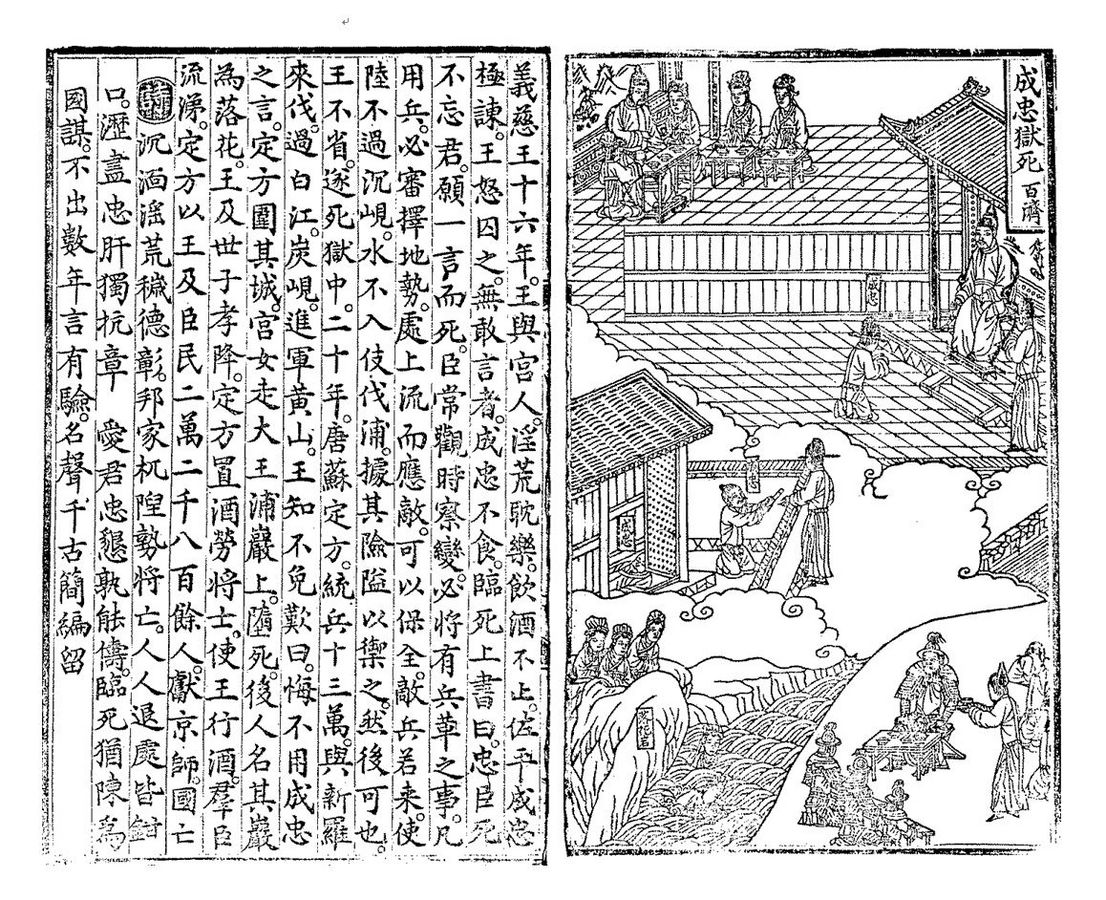 成忠獄死 百濟
成忠
成忠
落花岩
義慈王十六年。王與宮人。淫荒耽樂。飲酒不止。佐平成忠
極諫。王怒囚之。無敢言者。成忠不食。臨死上書曰。忠臣死
不忘君。願一言而死。臣常觀時察變。必將有兵革之事。凡
用兵。必審擇地勢。處上流而應敵。可以保全。敵兵若來。使
陸不過沉峴。水不入伎伐浦。據其險隘以禦之。然後可也。
王不省。遂死獄中。二十年。唐蘇定方。統兵十三萬。與新羅
來伐。過白江。炭峴。進軍黃山。王知不免歎曰。悔不用成忠
之言。定方圍其城。宮女走大王浦巖上。墮死。後人名其巖
為落花。王及世子孝降。定方置酒勞將士。使王行酒。羣臣
流涕。定方以王及臣民二萬二千八百餘人。獻京師。國亡
詩 沉湎淫荒穢德彰。邦家杌隉勢將亡。人人退處皆鉗
口。瀝盡忠肝獨抗章 愛君忠懇孰能儔。臨死猶陳為
國謀。不出數年言有驗。名聲千古簡編留